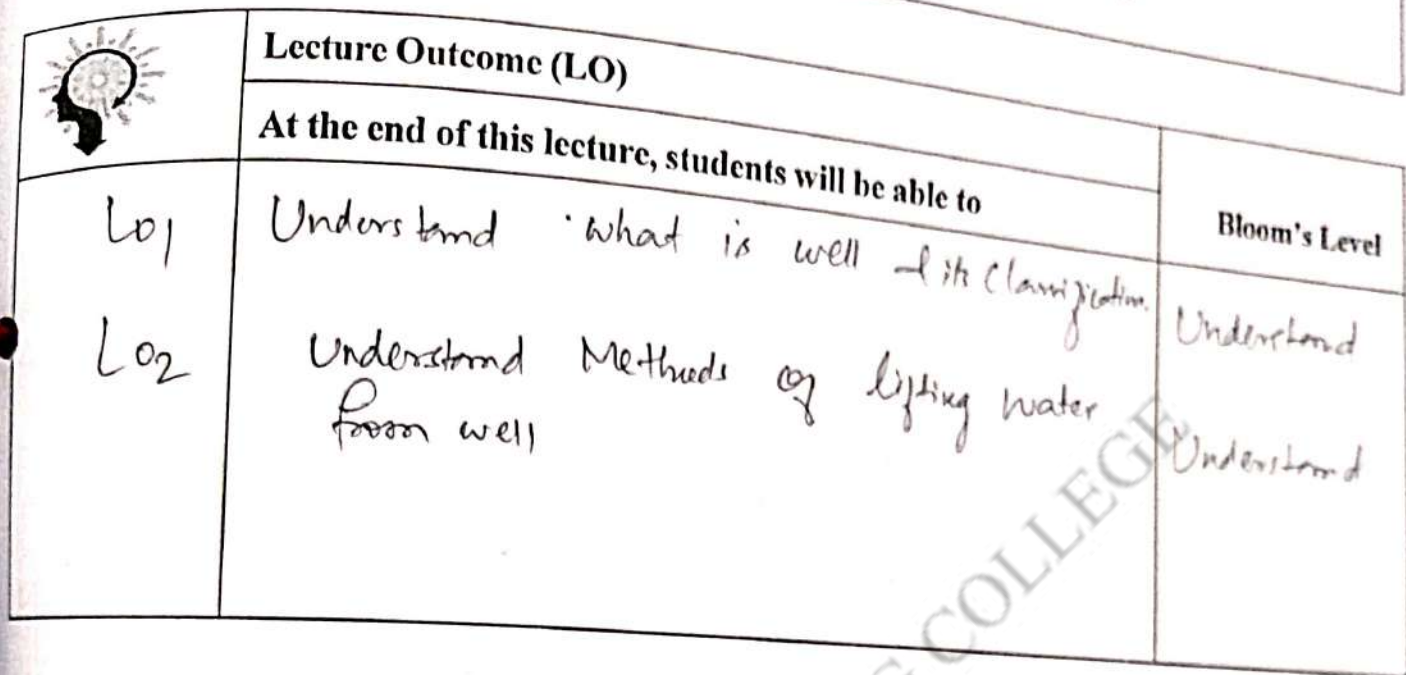 Lecture Outcome (LO)
At the end of this lecture, students will be able to
Bloom's Level
LO1 Understand what is well & its Classification. Understand
LO2 Understand Methods of lifting water Understand
from well
COLLEGE